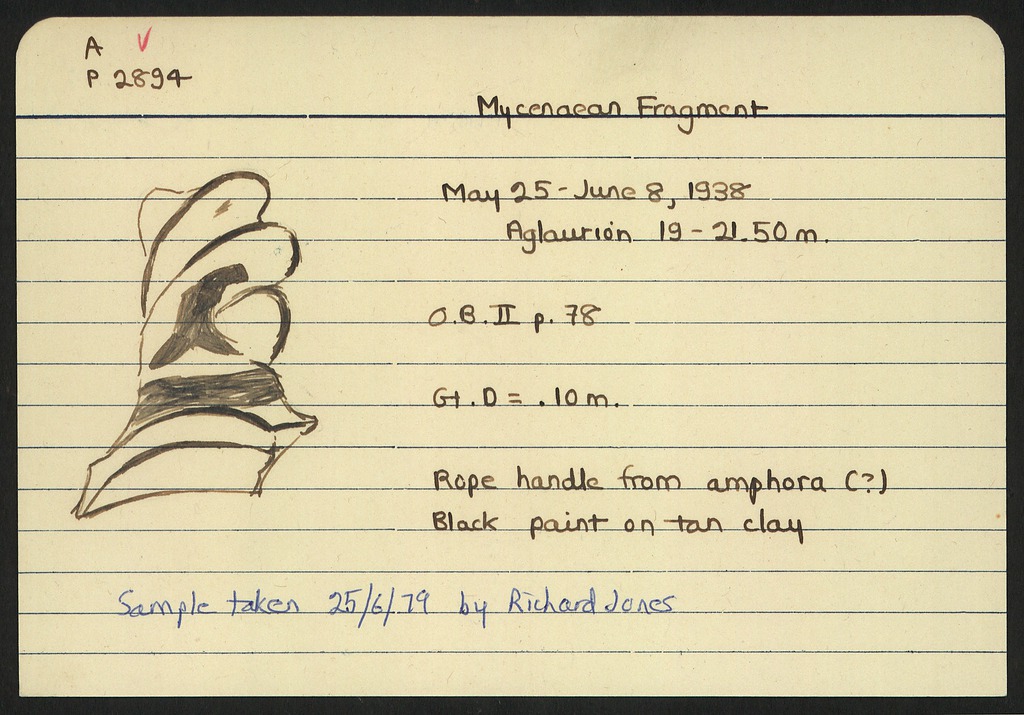 A V
P 2894
Mycenaean Fragment
May 25 - June 8, 1938
Aglaurion 19 - 21.50 m.
O.B. II p. 78
Gt. D = .10 m.
Rope handle from amphora (?)
Black paint on tan clay
Sample taken 25/6/79 by Richard Jones